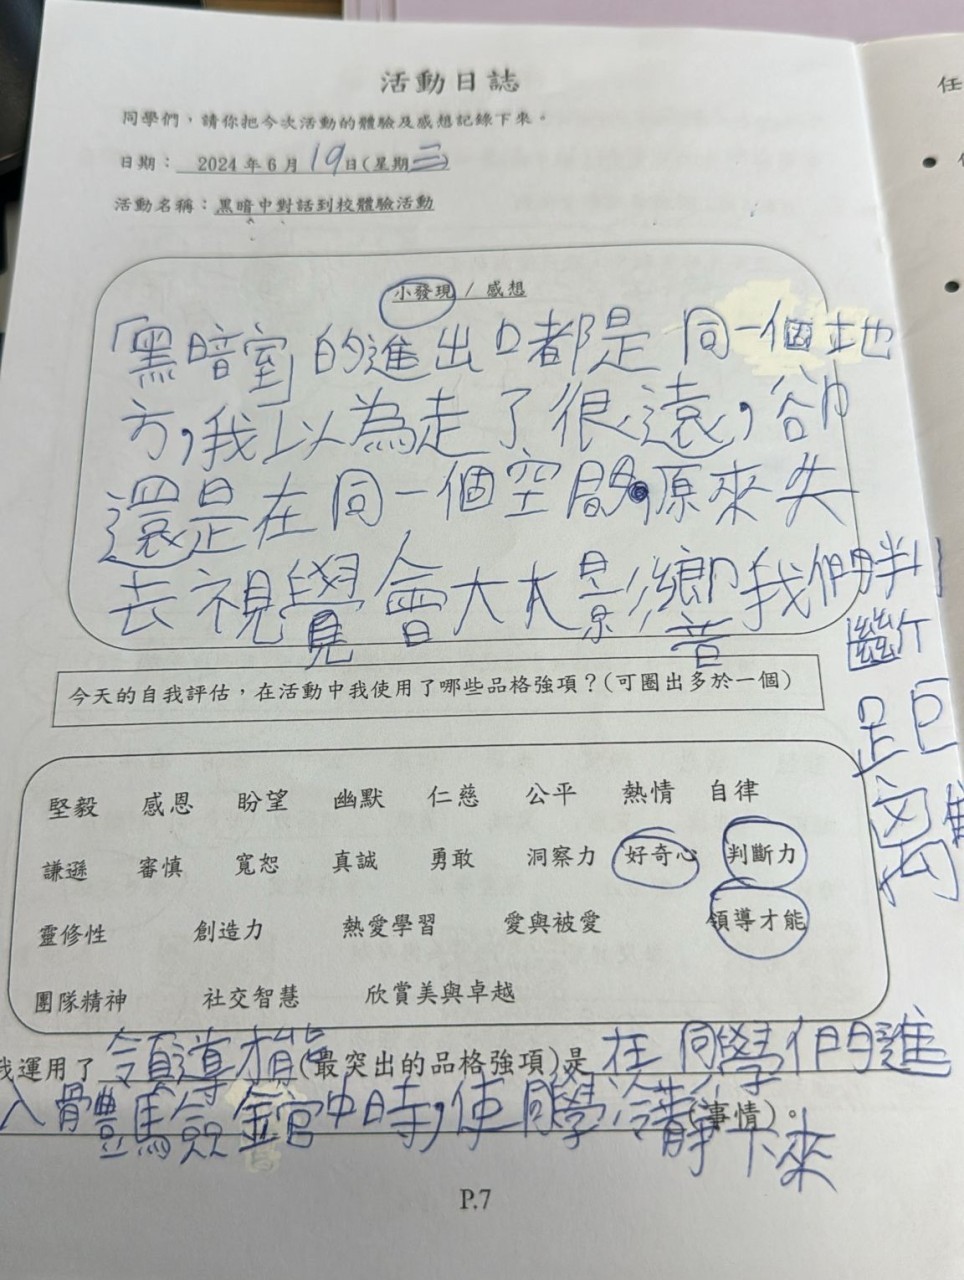 活動日誌
同學們，請你把今次活動的體驗及感想記錄下來。
日期： 2024 年 6 月 19 日(星期三)
活動名稱：黑暗中對話到校體驗活動
小發現 / 感想
「黑暗室」的進出口都是同一個地
方，我以為走了很遠，卻
還是在同一個空間。原來失
去視覺會大大影響我們判
斷
距
離
今天的自我評估，在活動中我使用了哪些品格強項？(可圈出多於一個)
堅毅 感恩 盼望 幽默 仁慈 公平 熱情 自律
謙遜 審慎 寬恕 真誠 勇敢 洞察力 好奇心 判斷力
靈修性 創造力 熱愛學習 愛與被愛 領導才能
團隊精神 社交智慧 欣賞美與卓越
我運用了 領導才能 (最突出的品格強項)是 在同學們進
入體驗館中時，使同學冷靜下來 (事情)。
P.7
任